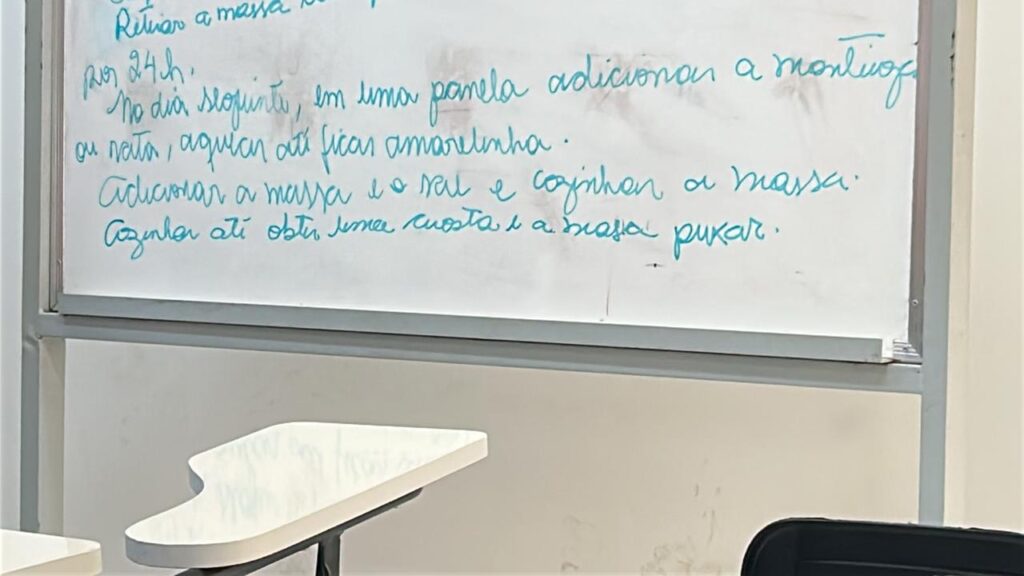 Retirar a massa
por 24h.
No dia seguinte, em uma panela adicionar a manteiga
ou nata, aquecer até ficar amarelinha.
Adicionar a massa e o sal e cozinhar a massa.
Cozinhar até obter uma crosta e a massa puxar.